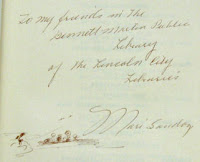 To my friends in the
Bennett Martin Public
Library
of the Lincoln City
Libraries
Mari Sandoz